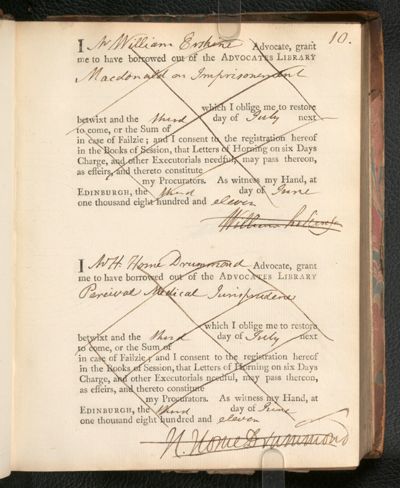 10.
I Mr William Erskine Advocate, grant
me to have borrowed out of the ADVOCATES LIBRARY
Macdonald on Imprisonment
which I oblige me to restore
betwixt and the third day of July next
to come, or the Sum of
in case of Failzie; and I consent to the registration hereof
in the Books of Session, that Letters of Horning on six Days
Charge, and other Executorials needful, may pass thereon,
as effeirs, and thereto constitute
my Procurators. As witness my Hand, at
EDINBURGH, the third day of June
one thousand eight hundred and eleven
William Erskine
I Mr H. Home Drummond Advocate, grant
me to have borrowed out of the ADVOCATES LIBRARY
Percival Medical Jurisprudence
which I oblige me to restore
betwixt and the third day of July next
to come, or the Sum of
in case of Failzie; and I consent to the registration hereof
in the Books of Session, that Letters of Horning on six Days
Charge, and other Executorials needful, may pass thereon,
as effeirs, and thereto constitute
my Procurators. As witness my Hand, at
EDINBURGH, the third day of June
one thousand eight hundred and eleven
H. Home Drummond